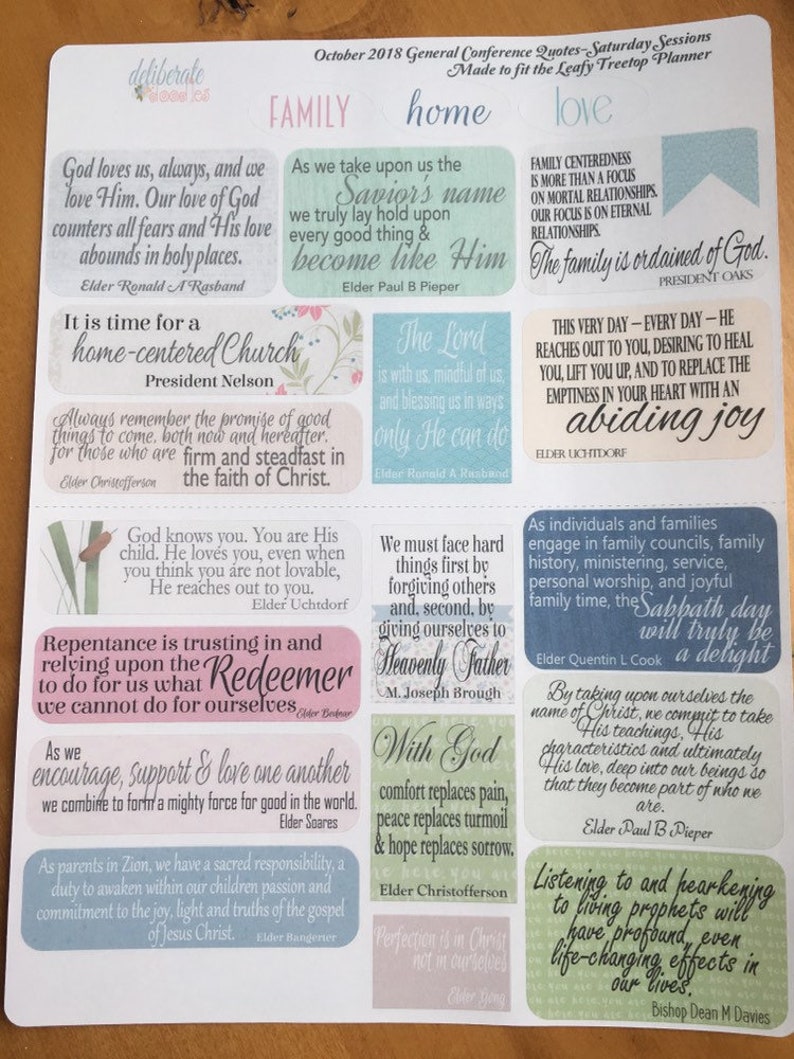 deliberate
doodles
October 2018 General Conference Quotes-Saturday Sessions
Made to fit the Leafy Treetop Planner
FAMILY
home
love
God loves us, always, and we
love Him. Our love of God
counters all fears and His love
abounds in holy places.
Elder Ronald A Rasband
As we take upon us the
Savior's name
we truly lay hold upon
every good thing &
become like Him
Elder Paul B Pieper
FAMILY CENTEREDNESS
IS MORE THAN A FOCUS
ON MORTAL RELATIONSHIPS.
OUR FOCUS IS ON ETERNAL
RELATIONSHIPS.
The family is ordained of God.
PRESIDENT OAKS
It is time for a
home-centered Church
President Nelson
The Lord
is with us, mindful of us,
and blessing us in ways
only He can do
Elder Ronald A Rasband
THIS VERY DAY – EVERY DAY – HE
REACHES OUT TO YOU, DESIRING TO HEAL
YOU, LIFT YOU UP, AND TO REPLACE THE
EMPTINESS IN YOUR HEART WITH AN
abiding joy
ELDER UCHTDORF
Always remember the promise of good
things to come, both now and hereafter,
for those who are firm and steadfast in
the faith of Christ.
Elder Christofferson
God knows you. You are His
child. He loves you, even when
you think you are not lovable,
He reaches out to you.
Elder Uchtdorf
We must face hard
things first by
forgiving others
and, second, by
giving ourselves to
Heavenly Father
M. Joseph Brough
As individuals and families
engage in family councils, family
history, ministering, service,
personal worship, and joyful
family time, the Sabbath day
will truly be
a delight
Elder Quentin L Cook
Repentance is trusting in and
relying upon the Redeemer
to do for us what
we cannot do for ourselves
Elder Bednar
By taking upon ourselves the
name of Christ, we commit to take
His teachings, His
characteristics and ultimately
His love, deep into our beings so
that they become part of who we
are.
Elder Paul B Pieper
As we
encourage, support & love one another
we combine to form a mighty force for good in the world.
Elder Soares
With God
comfort replaces pain,
peace replaces turmoil
& hope replaces sorrow.
Elder Christofferson
As parents in Zion, we have a sacred responsibility, a
duty to awaken within our children passion and
commitment to the joy, light and truths of the gospel
of Jesus Christ.
Elder Bangerter
Perfection is in Christ
not in ourselves
Elder Gong
Listening to and hearkening
to living prophets will
have profound, even
life-changing effects in
our lives.
Bishop Dean M Davies